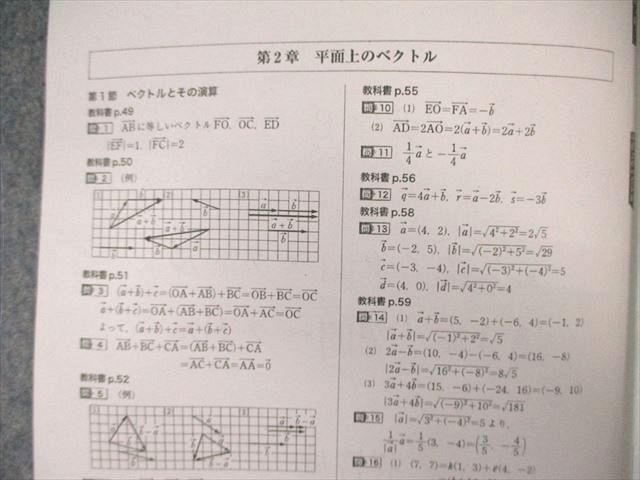 第2章 平面上のベクトル
第1節 ベクトルとその演算
教科書 p.49
問1 $\overrightarrow{AB}$に等しいベクトル $\overrightarrow{FO}$, $\overrightarrow{OC}$, $\overrightarrow{ED}$
$|\overrightarrow{EF}|=1$, $|\overrightarrow{FC}|=2$
教科書 p.50
問2 (例)
教科書 p.51
問3 $(\vec{a}+\vec{b})+\vec{c}=(\overrightarrow{OA}+\overrightarrow{AB})+\overrightarrow{BC}=\overrightarrow{OB}+\overrightarrow{BC}=\overrightarrow{OC}$
$\vec{a}+(\vec{b}+\vec{c})=\overrightarrow{OA}+(\overrightarrow{AB}+\overrightarrow{BC})=\overrightarrow{OA}+\overrightarrow{AC}=\overrightarrow{OC}$
よって, $(\vec{a}+\vec{b})+\vec{c}=\vec{a}+(\vec{b}+\vec{c})$
問4 $\overrightarrow{AB}+\overrightarrow{BC}+\overrightarrow{CA}=(\overrightarrow{AB}+\overrightarrow{BC})+\overrightarrow{CA}$
$=\overrightarrow{AC}+\overrightarrow{CA}=\overrightarrow{AA}=\vec{0}$
教科書 p.52
問5 (例)
教科書 p.55
問10 (1) $\overrightarrow{EO}=\overrightarrow{FA}=-\vec{b}$
(2) $\overrightarrow{AD}=2\overrightarrow{AO}=2(\vec{a}+\vec{b})=2\vec{a}+2\vec{b}$
問11 $\frac{1}{4}\vec{a}$ と $-\frac{1}{4}\vec{a}$
教科書 p.56
問12 $\vec{q}=4\vec{a}+\vec{b}$, $\vec{r}=\vec{a}-2\vec{b}$, $\vec{s}=-3\vec{b}$
教科書 p.58
問13 $\vec{a}=(4, 2)$, $|\vec{a}|=\sqrt{4^2+2^2}=2\sqrt{5}$
$\vec{b}=(-2, 5)$, $|\vec{b}|=\sqrt{(-2)^2+5^2}=\sqrt{29}$
$\vec{c}=(-3, -4)$, $|\vec{c}|=\sqrt{(-3)^2+(-4)^2}=5$
$\vec{d}=(4, 0)$, $|\vec{d}|=\sqrt{4^2+0^2}=4$
教科書 p.59
問14 (1) $\vec{a}+\vec{b}=(5, -2)+(-6, 4)=(-1, 2)$
$|\vec{a}+\vec{b}|=\sqrt{(-1)^2+2^2}=\sqrt{5}$
(2) $2\vec{a}-\vec{b}=(10, -4)-(-6, 4)=(16, -8)$
$|2\vec{a}-\vec{b}|=\sqrt{16^2+(-8)^2}=8\sqrt{5}$
(3) $3\vec{a}+4\vec{b}=(15, -6)+(-24, 16)=(-9, 10)$
$|3\vec{a}+4\vec{b}|=\sqrt{(-9)^2+10^2}=\sqrt{181}$
問15 $|\vec{a}|=\sqrt{3^2+(-4)^2}=5$ より,
$\frac{1}{|\vec{a}|}\vec{a}=\frac{1}{5}(3, -4)=\left(\frac{3}{5}, -\frac{4}{5}\right)$
問16 (1) $(7, 7)=k(1, 3)+\ell(4, -2)$